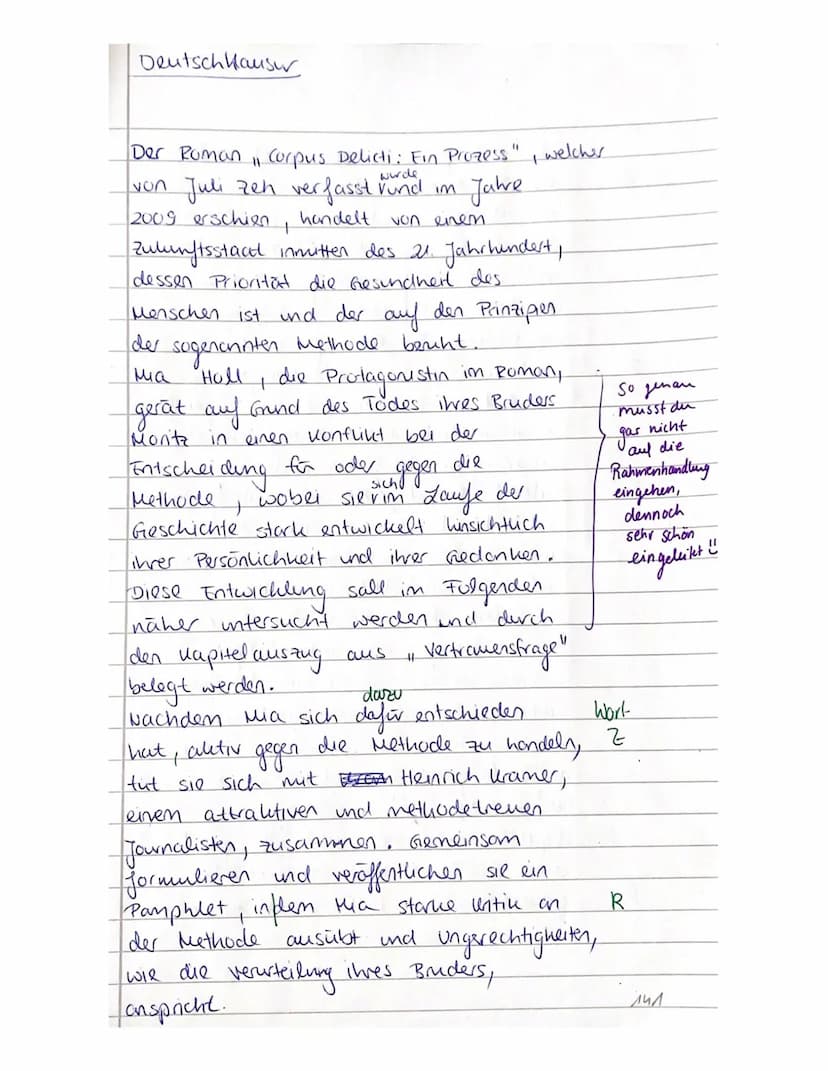 Deutsch Klausur
Der Roman „Corpus Delicti: Ein Prozess", welcher
wurde
von Juli Zeh verfasst und im Jahre
2009 erschien, handelt von einem
Zukunftsstaat inmitten des 21. Jahrhundert,
dessen Priorität die Gesundheit des
Menschen ist und der auf den Prinzipen
der sogenannten Methode beruht.
Mia Holl, die Protagonistin im Roman,
gerät auf Grund des Todes ihres Bruders
Moritz in einen Konflikt bei der
Entscheidung für oder gegen die
sich
Methode, wobei sie im Laufe der
Geschichte stark entwickelt hinsichtlich
ihrer Persönlichkeit und ihrer Gedanken.
Diese Entwicklung soll im Folgenden
näher untersucht werden und durch
den Kapitelauszug aus „Vertrauensfrage"
belegt werden.
So genau
musst du
gar nicht
auf die
Rahmenhandlung
eingehen,
dennoch
sehr schön
eingeleitet!!
dazu
Nachdem Mia sich dafür entschieden
Wort-
hat, aktiv gegen die Methode zu handeln,
Z
tut sie sich mit Heinrich Kramer,
einem attraktiven und methodetreuen
Journalisten, zusammen. Gemeinsam
formulieren und veröffentlichen sie ein
Pamphlet, in dem Mia starke Kritik an
R
der Methode ausübt und Ungerechtigkeiten,
wie die Verurteilung ihres Bruders,
anspricht.
141